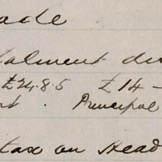 ade
alment di
£24.8.5 £14 -
Principal
tax on Read